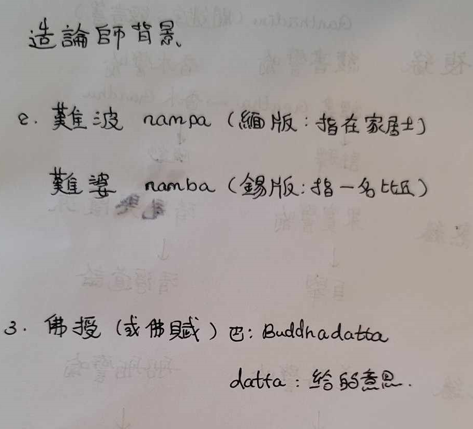 造論師背景
2. 難波 nampa (緬版:指在家居士)
難婆 namba (錫版:指一名比丘)
3. 佛授 (或佛賦) 巴: Buddhadatta
datta : 給的意思.